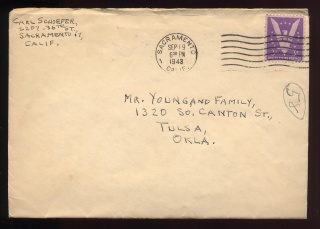 CARL SCHOEFER,
2257-36TH ST.
SACRAMENTO 17,
CALIF.
SACRAMENTO
1
SEP 19
6 PM
1943
CALIF.
MR. YOUNG AND FAMILY,
1320 SO. CANTON ST.,
TULSA,
OKLA.